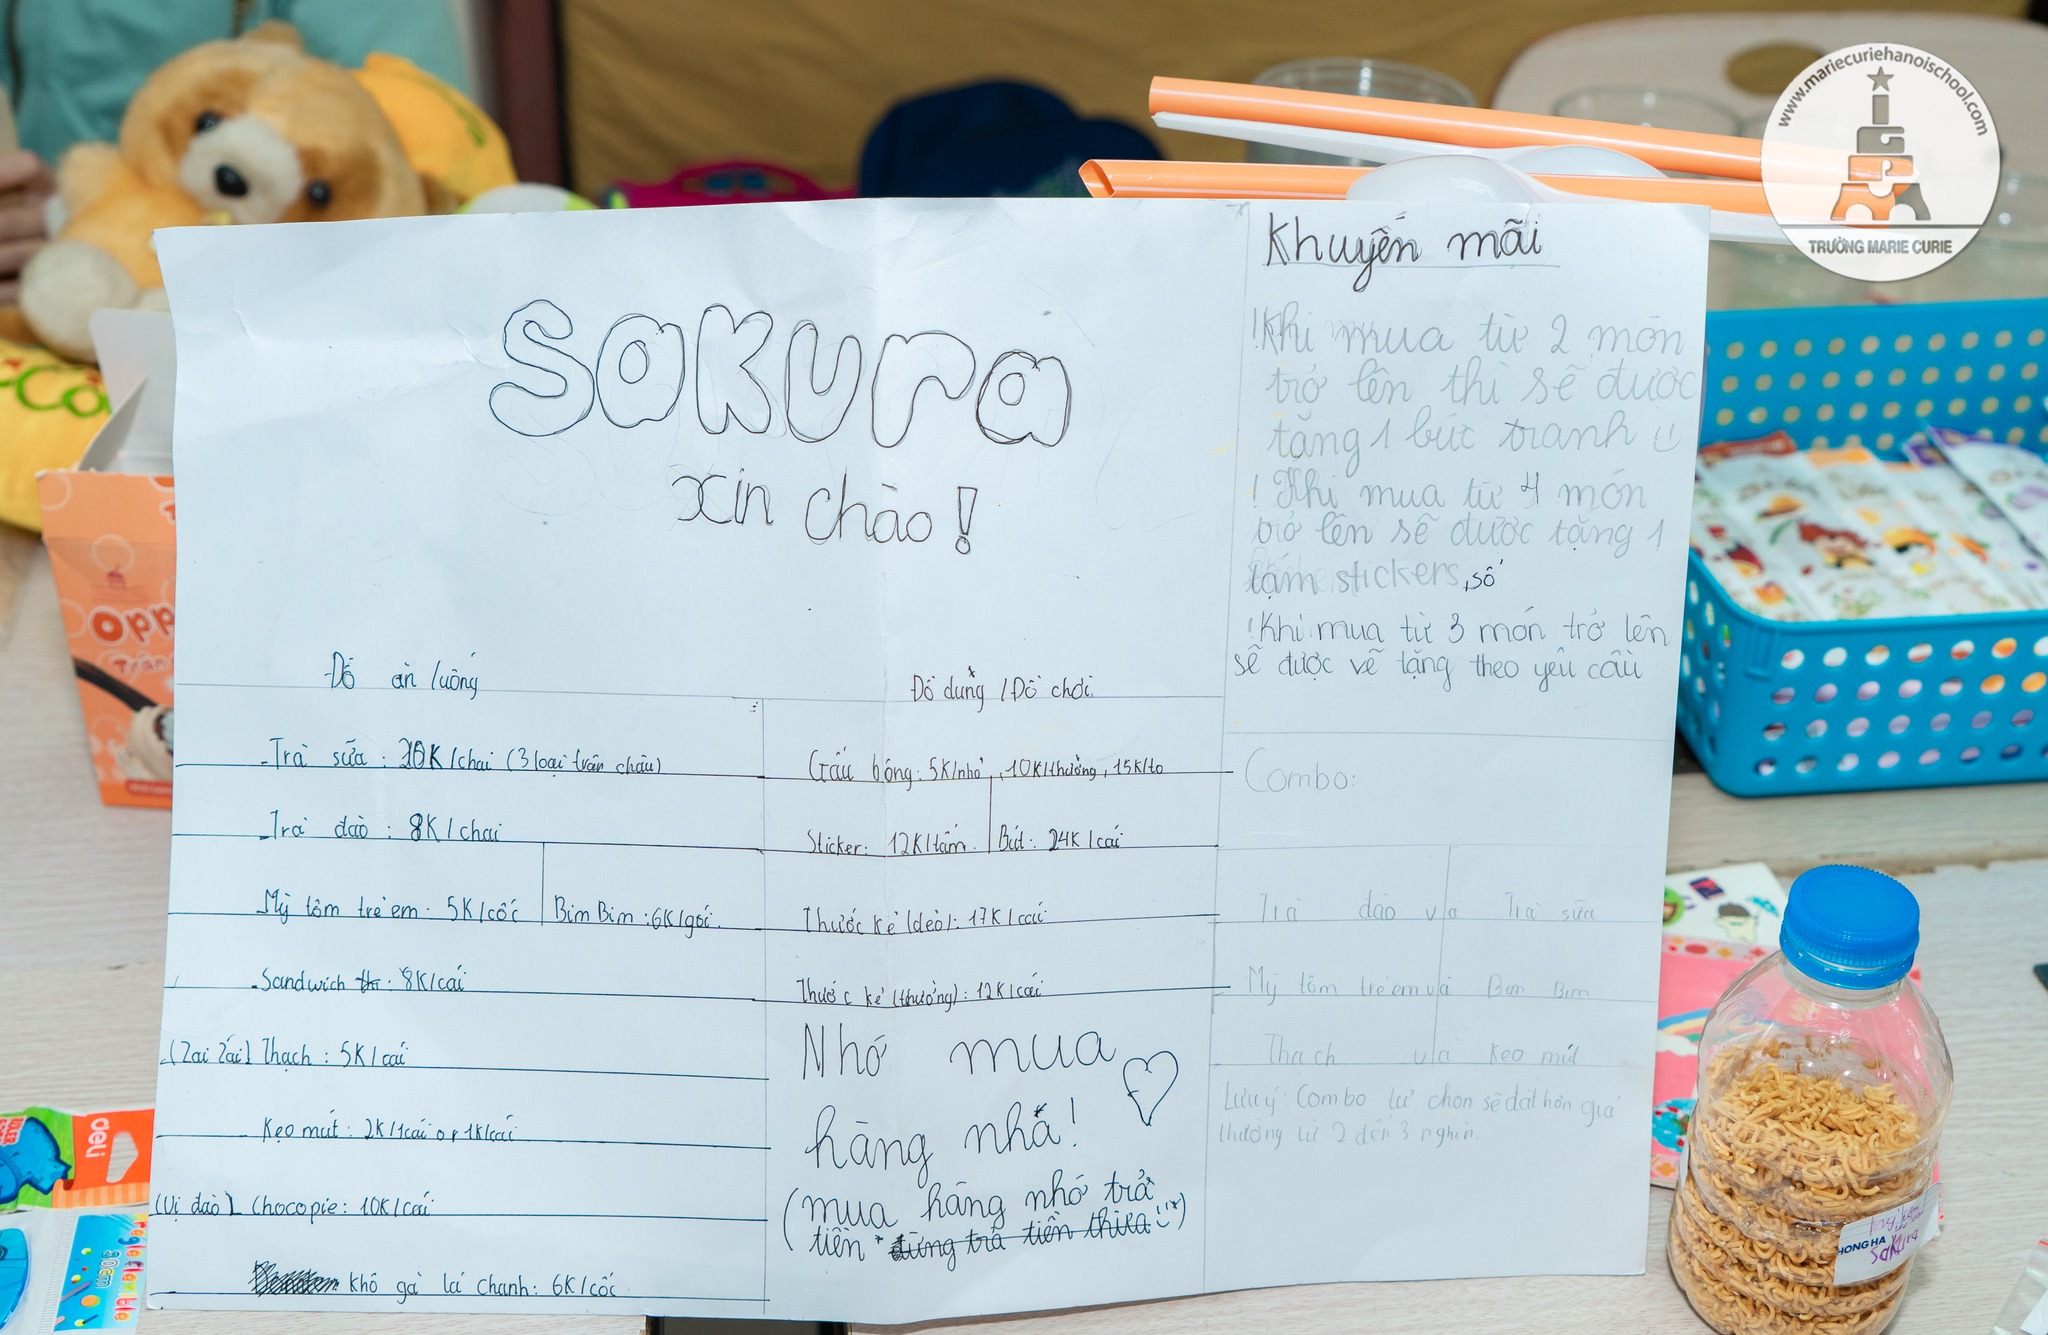 www.mariecuriehanoischool.com
TRƯỜNG MARIE CURIE
Sakura
xin chào!
Đồ ăn /uống
Trà sữa: 20K/chai (3 loại trân châu)
Trà đào: 8K/chai
Mỳ tôm trẻ em: 5K/cốc
Bim Bim: 6K/gói
Sandwich: 8K/cái
Thạch: 5K/cái
Kẹo mút: 2K/1cái or 1K/cái
(Vị đào) Chocopie: 10K/cái
khô gà lá chanh: 6K/cốc
Đồ dùng /Đồ chơi
Gấu bông: 5K/nhỏ, 10K/thường, 15K/to
Sticker: 12K/tấm
Bút: 24K/cái
Thước kẻ (dẻo): 17K/cái
Thước kẻ (thường): 12K/cái
Nhớ mua
hàng nhá!
(mua hàng nhớ trả
tiền đừng trả tiền thừa)
Khuyến mãi
! Khi mua từ 2 món
trở lên thì sẽ được
tặng 1 bức tranh
! Khi mua từ 4 món
trở lên sẽ được tặng 1
tấm stickers, số
! Khi mua từ 3 món trở lên
sẽ được vẽ tặng theo yêu cầu
Combo:
Trà đào và Trà sữa
Mỳ tôm trẻ em và Bim Bim
Thạch và kẹo mút
Lưu ý: Combo tự chọn sẽ đắt hơn giá
thường từ 2 đến 3 nghìn.
Opp
Trân
deli
flexible
30cm
HONG HA
Sakura